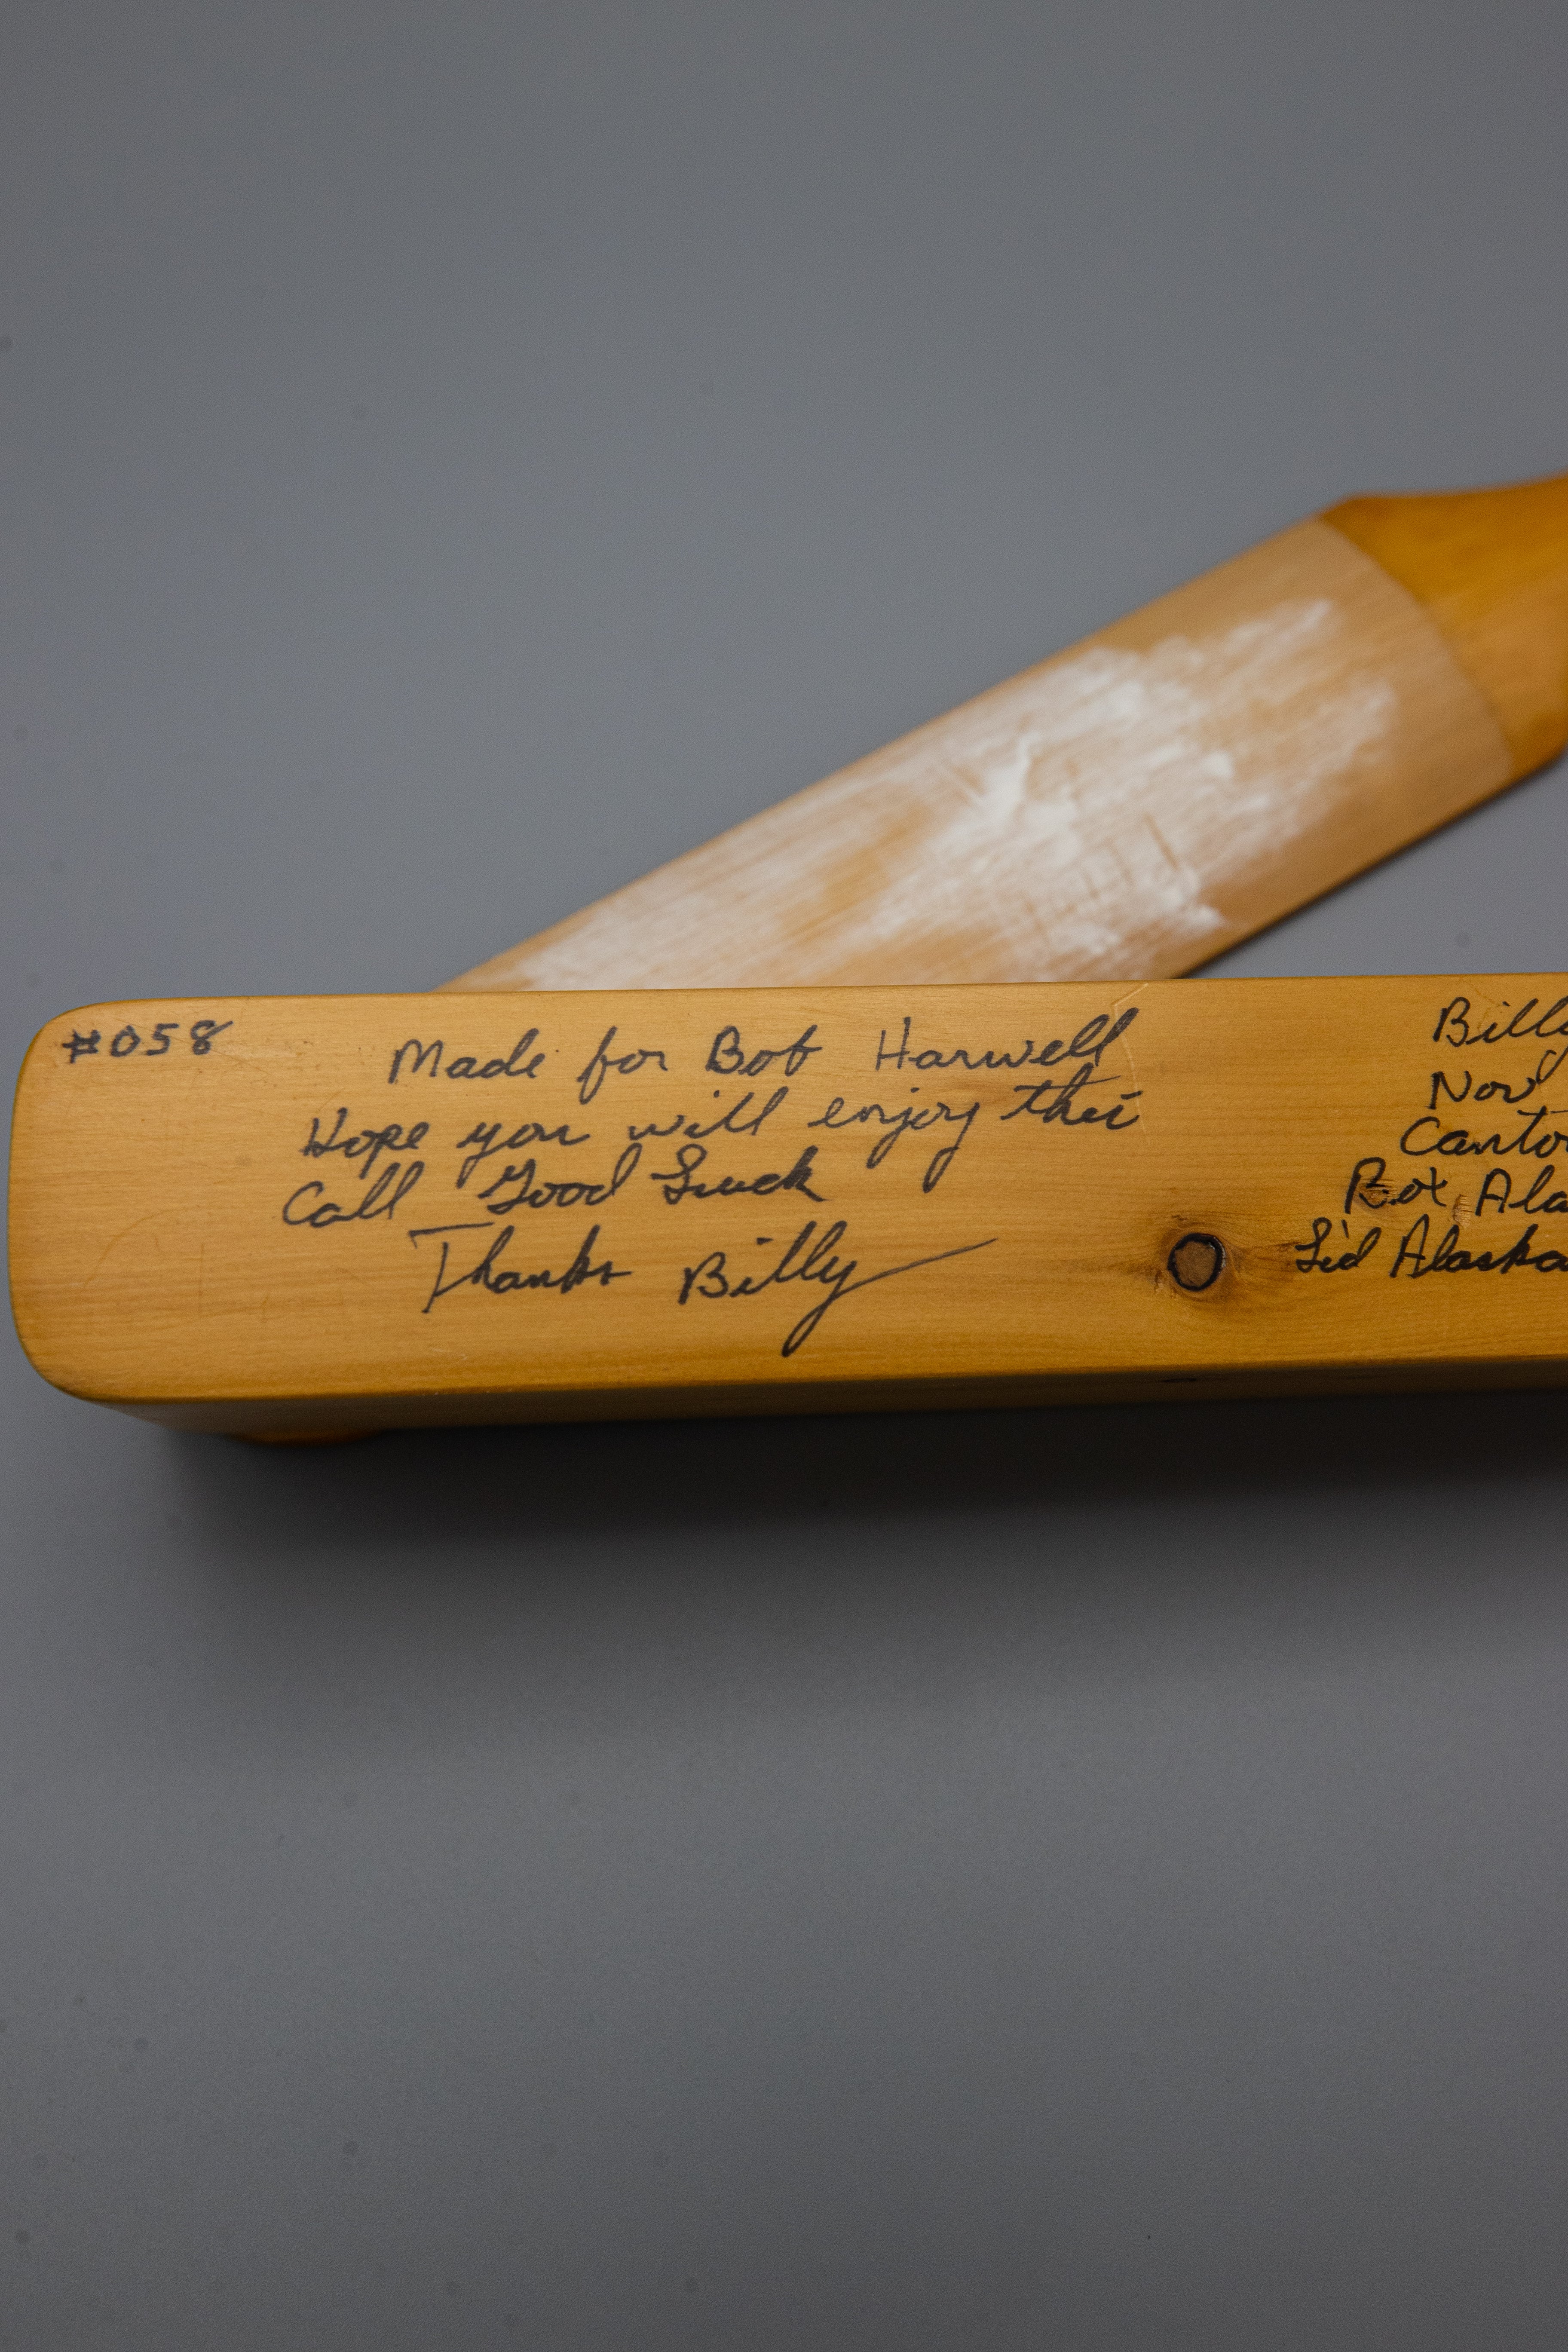 #058
Made for Bob Harwell
Hope you will enjoy this
Call Good Luck
Thanks Billy
Billy
Nov
Canto
Box Ala
Lid Alaska